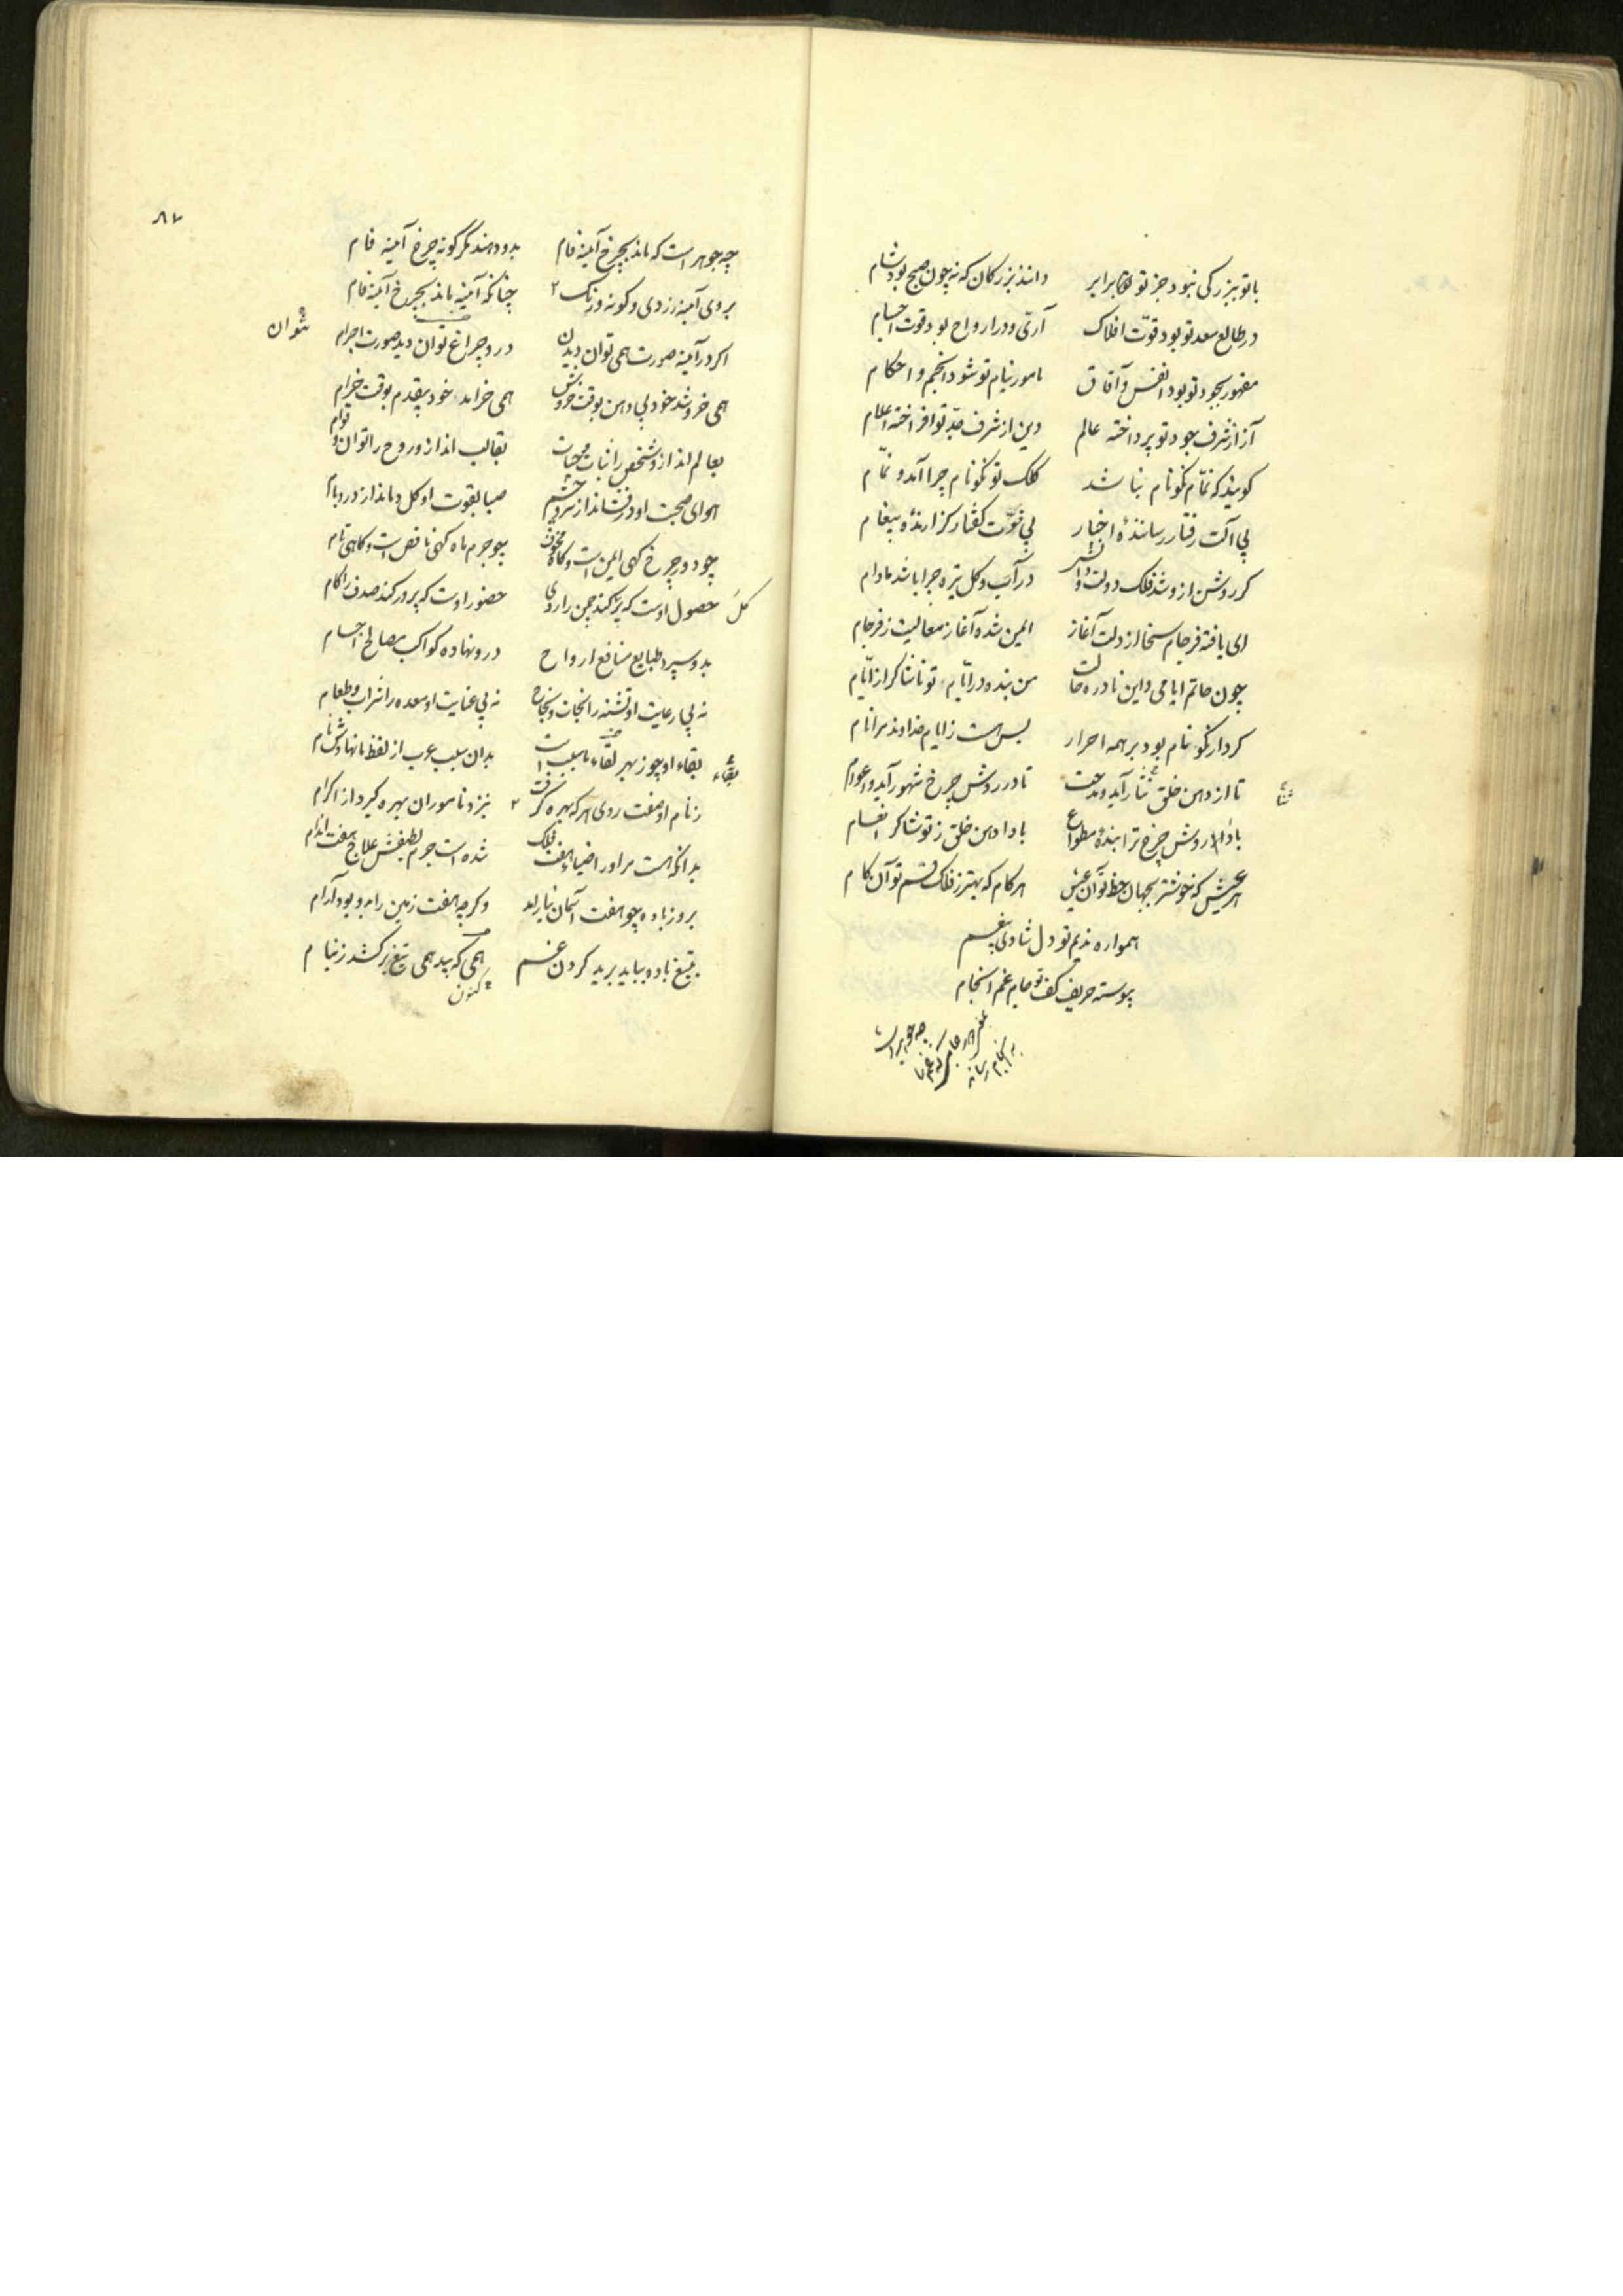 با تو ببزرگی نبود جز تو برابر دانند بزرگان که نه چون صبح بود شام
در طالع سعد تو بود قوت افلاک آری و در ارواح بود قوت اجسام
مقهور بجود تو بود انفس و آفاق مامور بنام تو شود انجم و احکام
آز از شرف جود تو پرداخته عالم دین از شرف جد تو افراخته اعلام
کویند که نمّام نکونام نباشد کلک تو نکونام چرا آمد و نمّام
بی آلت رفتار رساننده اخبار بی قوّت کفتار کزارنده پیغام
کر روشن ازو شد فلک دولت و دانش در آب و کل تیره چرا باشد مادام
ای یافته فرجام سخا از دلت آغاز ایمن شده آغاز معالیت ز فرجام
چون حاتم ایامی و این نادره حالت من بنده در ایّام تو ناشاکر از ایّام
کردار نکو نام بود بر همه احرار بس هست ز ایام خداوند مرا نام
تا از دهن خلق ثنا آید و مدحت تا در روش چرخ شهور آید و اعوام
ثنا
بادا روش چرخ ترا بنده مطواع بادا دهن خلق ز تو شاکر انعام
هر عیش که خوشتر بجهان حظ تو آن عیش هر کام که بهتر ز فلک قسم تو آن کام
همواره ندیم تو دل شاد بی غم
پیوسته حریف کف تو جام غم انجام
چه جوهر است
۸۷
چه جوهر است که ماند بچرخ آینه فام بدو دهند مکر کونه چرخ آینه فام
بروی آینه زردی و کونه و رنک چنانکه آینه ماند بچرخ آینه فام
اکر در آینه صورت همی توان دیدن درو چراغ توان دید صورت اجرام
بتوان
همی خروشد خود بی دهن بوقت خروش همی خرامد خود بیقدم بوقت خرام
بعالم اندازو شخص را نبات و حیات بقالب اندازو روح را توان و قوام
هوای صحبت او در فشاند از سر و چشم صبا بقوت او کل دماند از در و بام
چو دور چرخ کهی ایمن است و کاه مخوف چو جرم ماه کهی ناقص است و کاهی تام
کل حصول اوست که پر کند چمن را روی حضور اوست که پر در کند صدف را کام
بدو سپرده طبایع منافع ارواح درو نهاده کواکب مصالح اجسام
نه بی رعایت او تشنه را نجات و نجاح نه بی عنایت او معده را شراب و طعام
بقاء او چو ز بهر بقاء ما سبب است بدان سبب عرب از لفظ ما نهادش نام
بقاء
ز نام او صفت روی هر که بهره کرفت بنزد ناموران بهره کیرد از اکرام
بدانکه هست مر او را ضیاء هفت فلک شده است جرم لطیفش علاج هفت اندام
بروز باده چو هفت آسمان نیاراید وکرچه هفت زمین را بدو بود آرام
بتیغ باده بباید برید کردن غم همی که بید همی تیغ بر کشد ز نیام
کنون